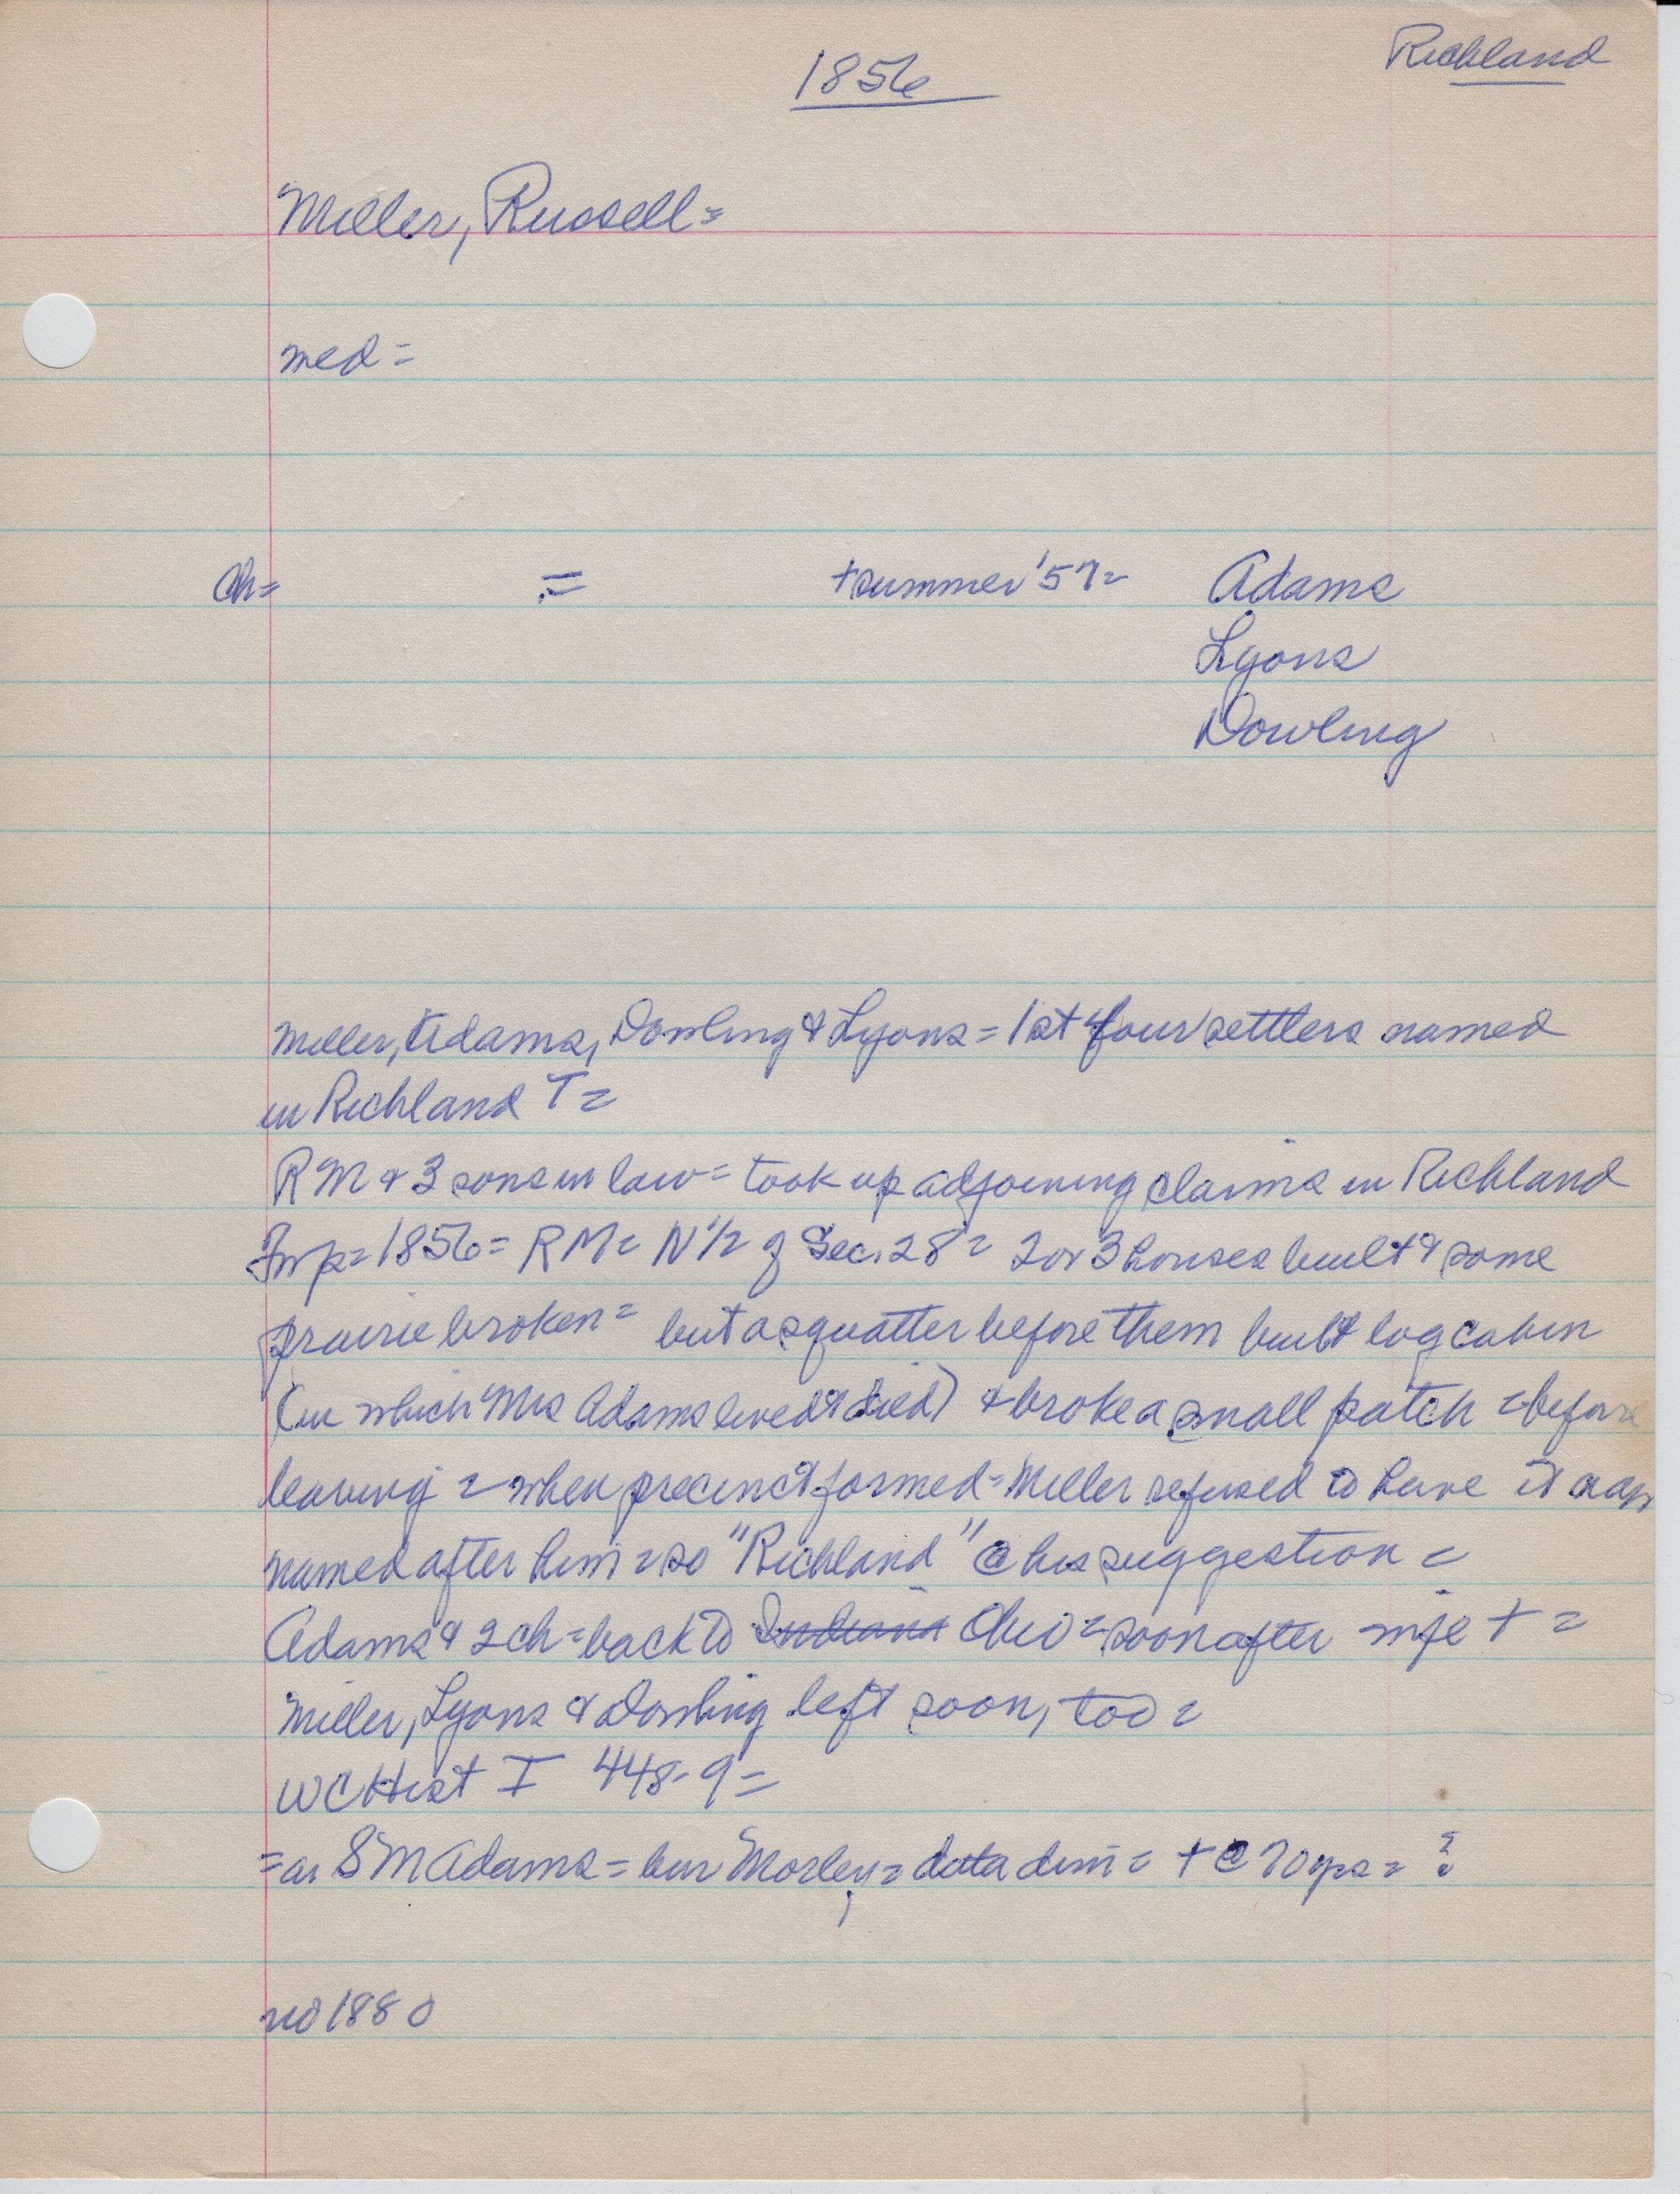 Richland
1856
Miller, Russell =
med =
Ch = = + summer '57 = Adams
Lyons
Dowling
Miller, Adams, Dowling & Lyons = 1st four settlers named
in Richland T =
RM & 3 sons in law = took up adjoining claims in Richland
Twp = 1856 = RM = N 1/2 of Sec. 28 = 2 or 3 houses built & some
prairie broken = but a squatter before them built log cabin
(in which Mrs Adams lived & died) & broke a small patch = before
leaving = when precinct formed = Miller refused to have it
named after him = so "Richland" @ his suggestion =
Adams & 2 ch = back to Indiana Ohio = soon after wife + =
Miller, Lyons & Dowling left soon, too =
WC Hist I 448-9 =
= as S M Adams = bur Morley = data dim = + @ 70 yrs = ?
no 1880